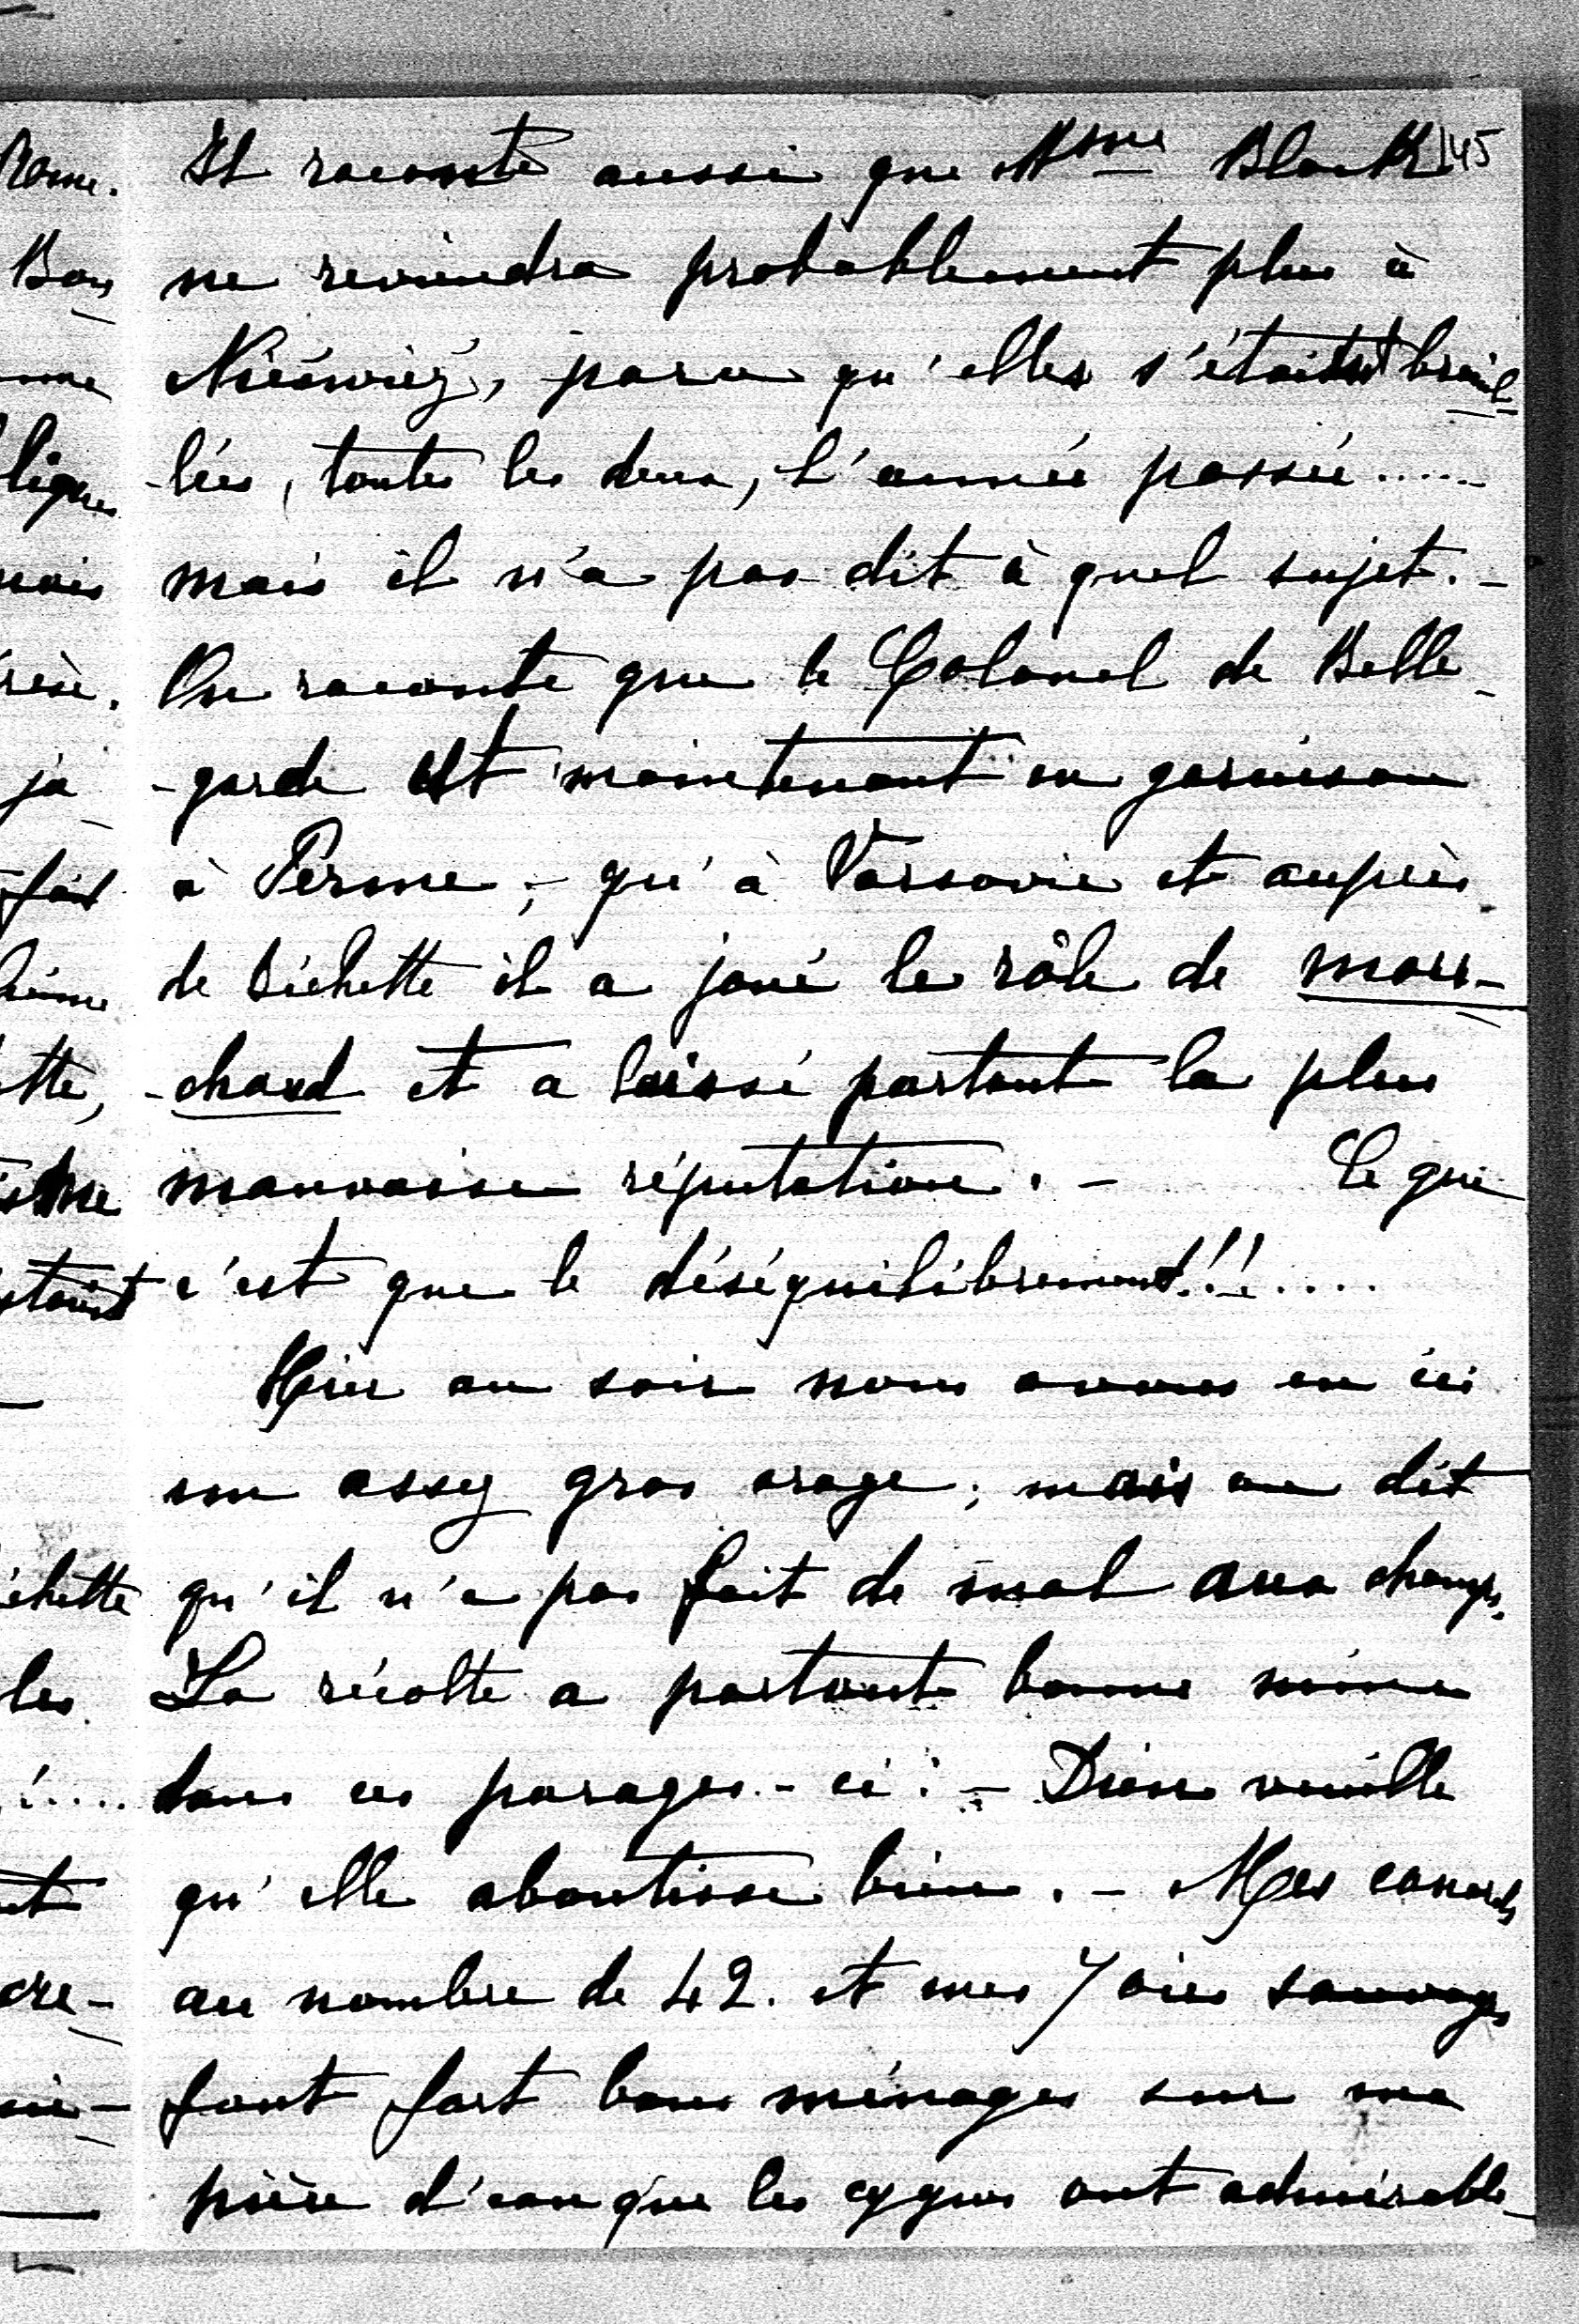 145
Il raconte aussi que Mme Black
ne reviendra probablement plus à
Nieśwież, parce qu'elles s'étaient brouil-
-lées, toutes les deux, l'année passée.....
mais il n'a pas dit à quel sujet. -
On raconte que le Colonel de Belle-
-garde est maintenant en garnison
à Perme, - qu'à Varsovie et auprès
de Bichette il a joué le rôle de mou-
-chard et a laissé partout la plus
mauvaise réputation. - Ce que
c'est que le déséquilibrement!!....
Hier au soir nous avons eu ici
un assez gros orage; mais on dit
qu'il n'a pas fait de mal aux champs.
La récolte a partout bonne mine
dans ces parages-ci: - Dieu veuille
qu'elle aboutisse bien. - Mes canards
au nombre de 42. et mes 7 oies sauvages
font fort bons ménages sur ma
pièce d'eau que les cygnes ont admirable-